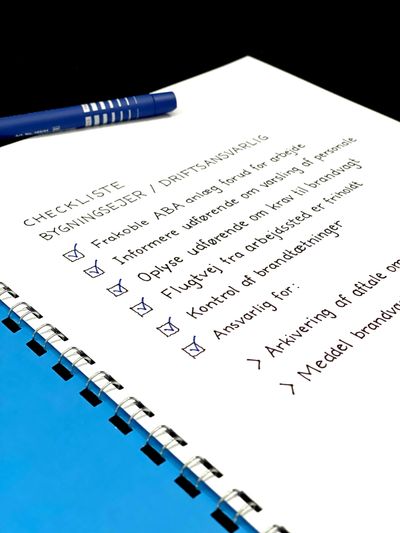 CHECKLISTE
BYGNINGSEJER / DRIFTSANSVARLIG
Frakoble ABA anlæg forud for arbejde
Informere udførende om varsling af personale
Oplyse udførende om krav til brandvagt
Flugtvej fra arbejdssted er friholdt
Kontrol af brandtætninger
Ansvarlig for:
> Arkivering af aftale om
> Meddel